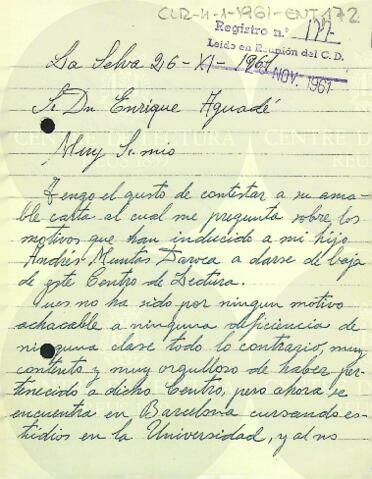 CLR-4-1-1961-ENT 172
Registro n.º 177
Leído en Reunión del C.D.
2 NOV. 1961
La Selva 26-XI-1961
Sr Dn Enrique Aguadé
Muy Sr. mio
Tengo el gusto de contestar a su ama-
ble carta al cual me pregunta sobre los
motivos que han inducido a mi hijo
Andrés Muntas Daroca a darse de baja
de este Centro de Lectura.
ues no ha sido por ningun motivo
achacable a ninguna deficiencia de
ninguna clase todo lo contrario, muy
contento y muy orgulloso de haber per-
tenecido a dicho Centro, pero ahora se
encuentra en Barcelona cursando es-
tudios en la Universidad, y al no